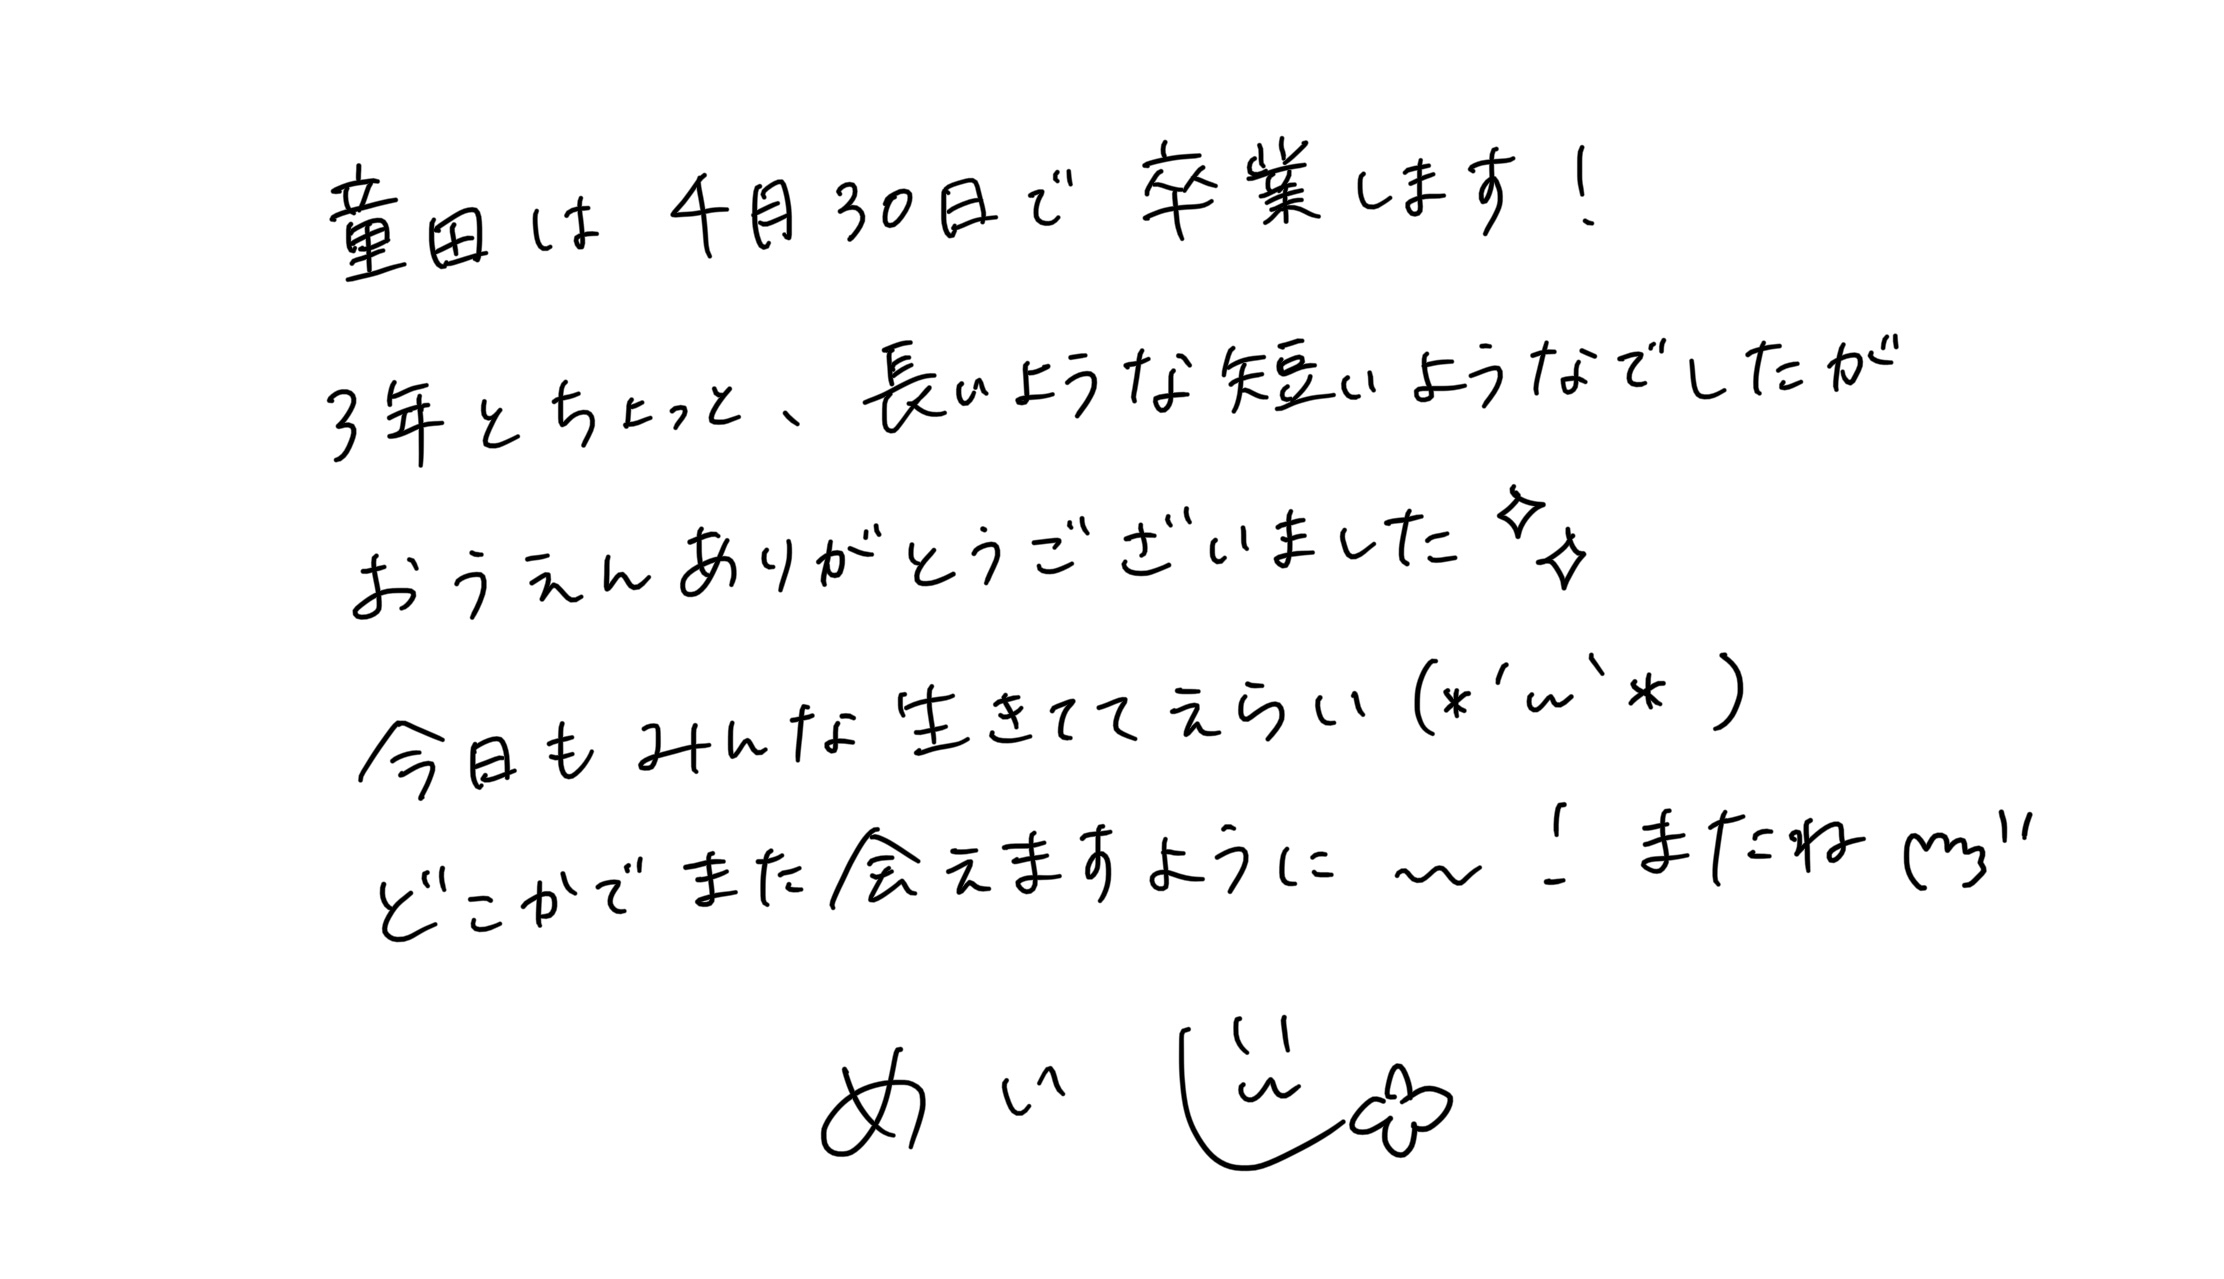 童田は4月30日で卒業します!
3年とちょっと、長いような短いようなでしたが
おうえんありがとうございました✧✧
今日もみんな生きててえらい(*´ω`*)
どこかでまた会えますように〜!またね
めいじ